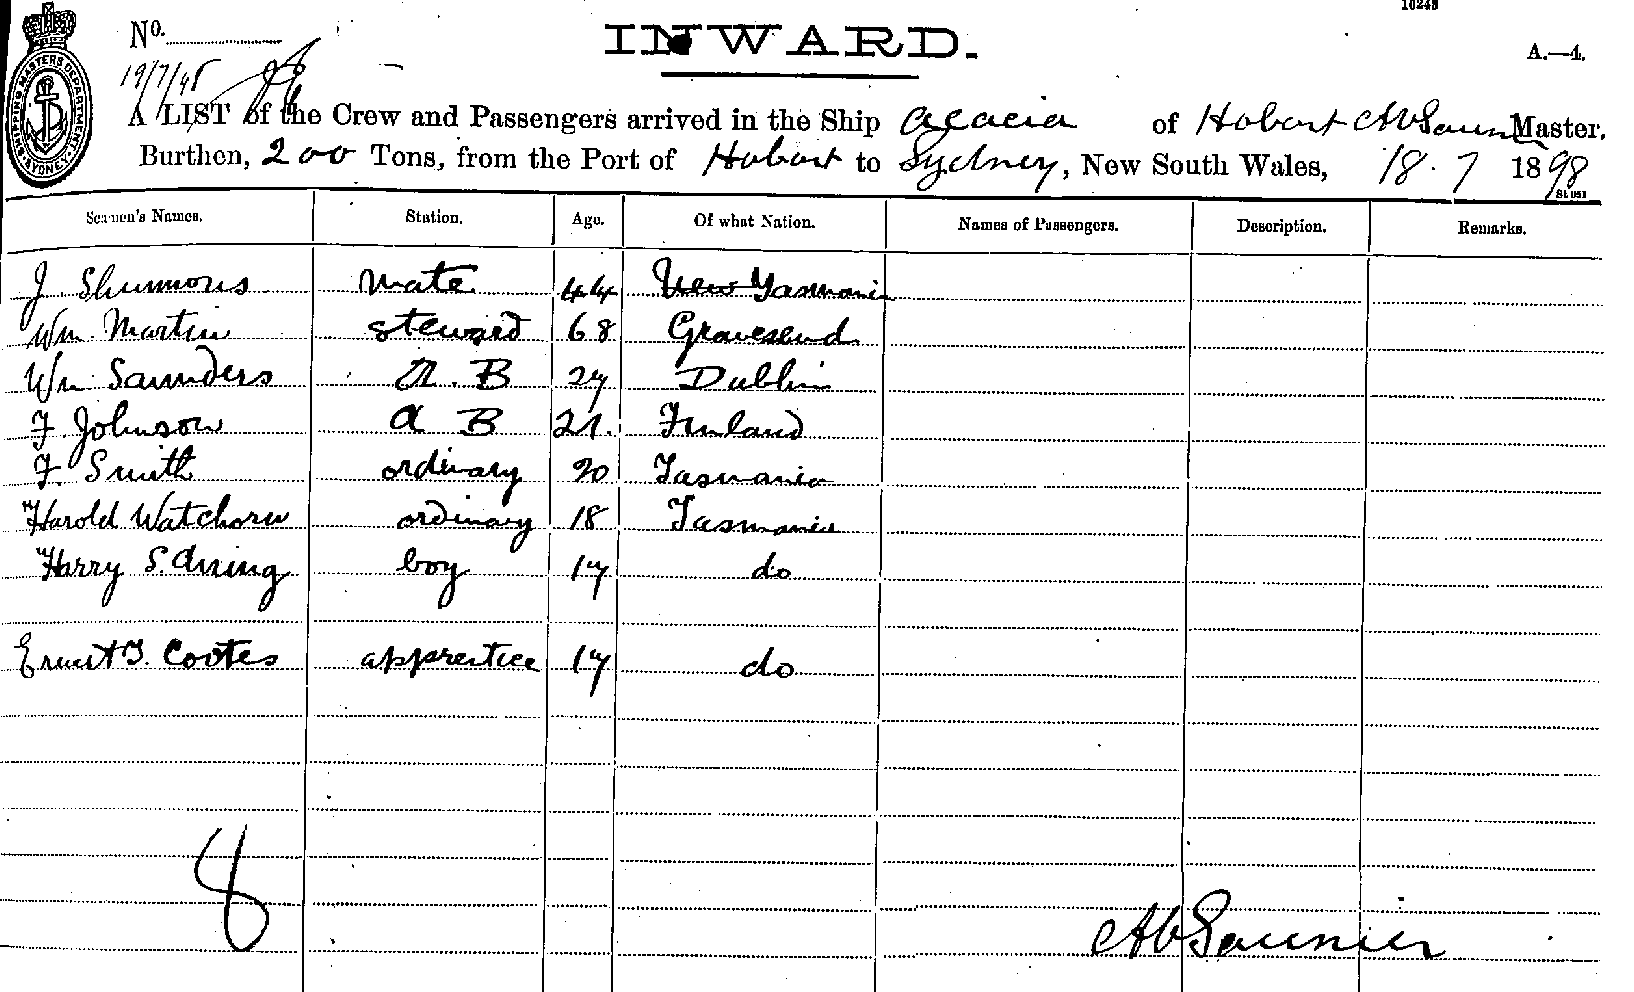 10248
No.
INWARD.
A.—4.
19/7/98
A LIST of the Crew and Passengers arrived in the Ship Acacia of Hobart A V Saunier Master,
Burthen, 200 Tons, from the Port of Hobart to Sydney, New South Wales, 18.7 1898
Seamen's Names. Station. Age. Of what Nation. Names of Passengers. Description. Remarks.
J. Shimmons mate 44 New Tasmania
Wm. Martin steward 68 Gravesend
Wm Saunders A.B 27 Dublin
F Johnson A B 21. Finland
F. Smith ordinary 20 Tasmania
Harold Watchorn ordinary 18 Tasmania
Harry S. boy 17 do
Ernest J. Cootes apprentice 17 do
8
A V Saunier